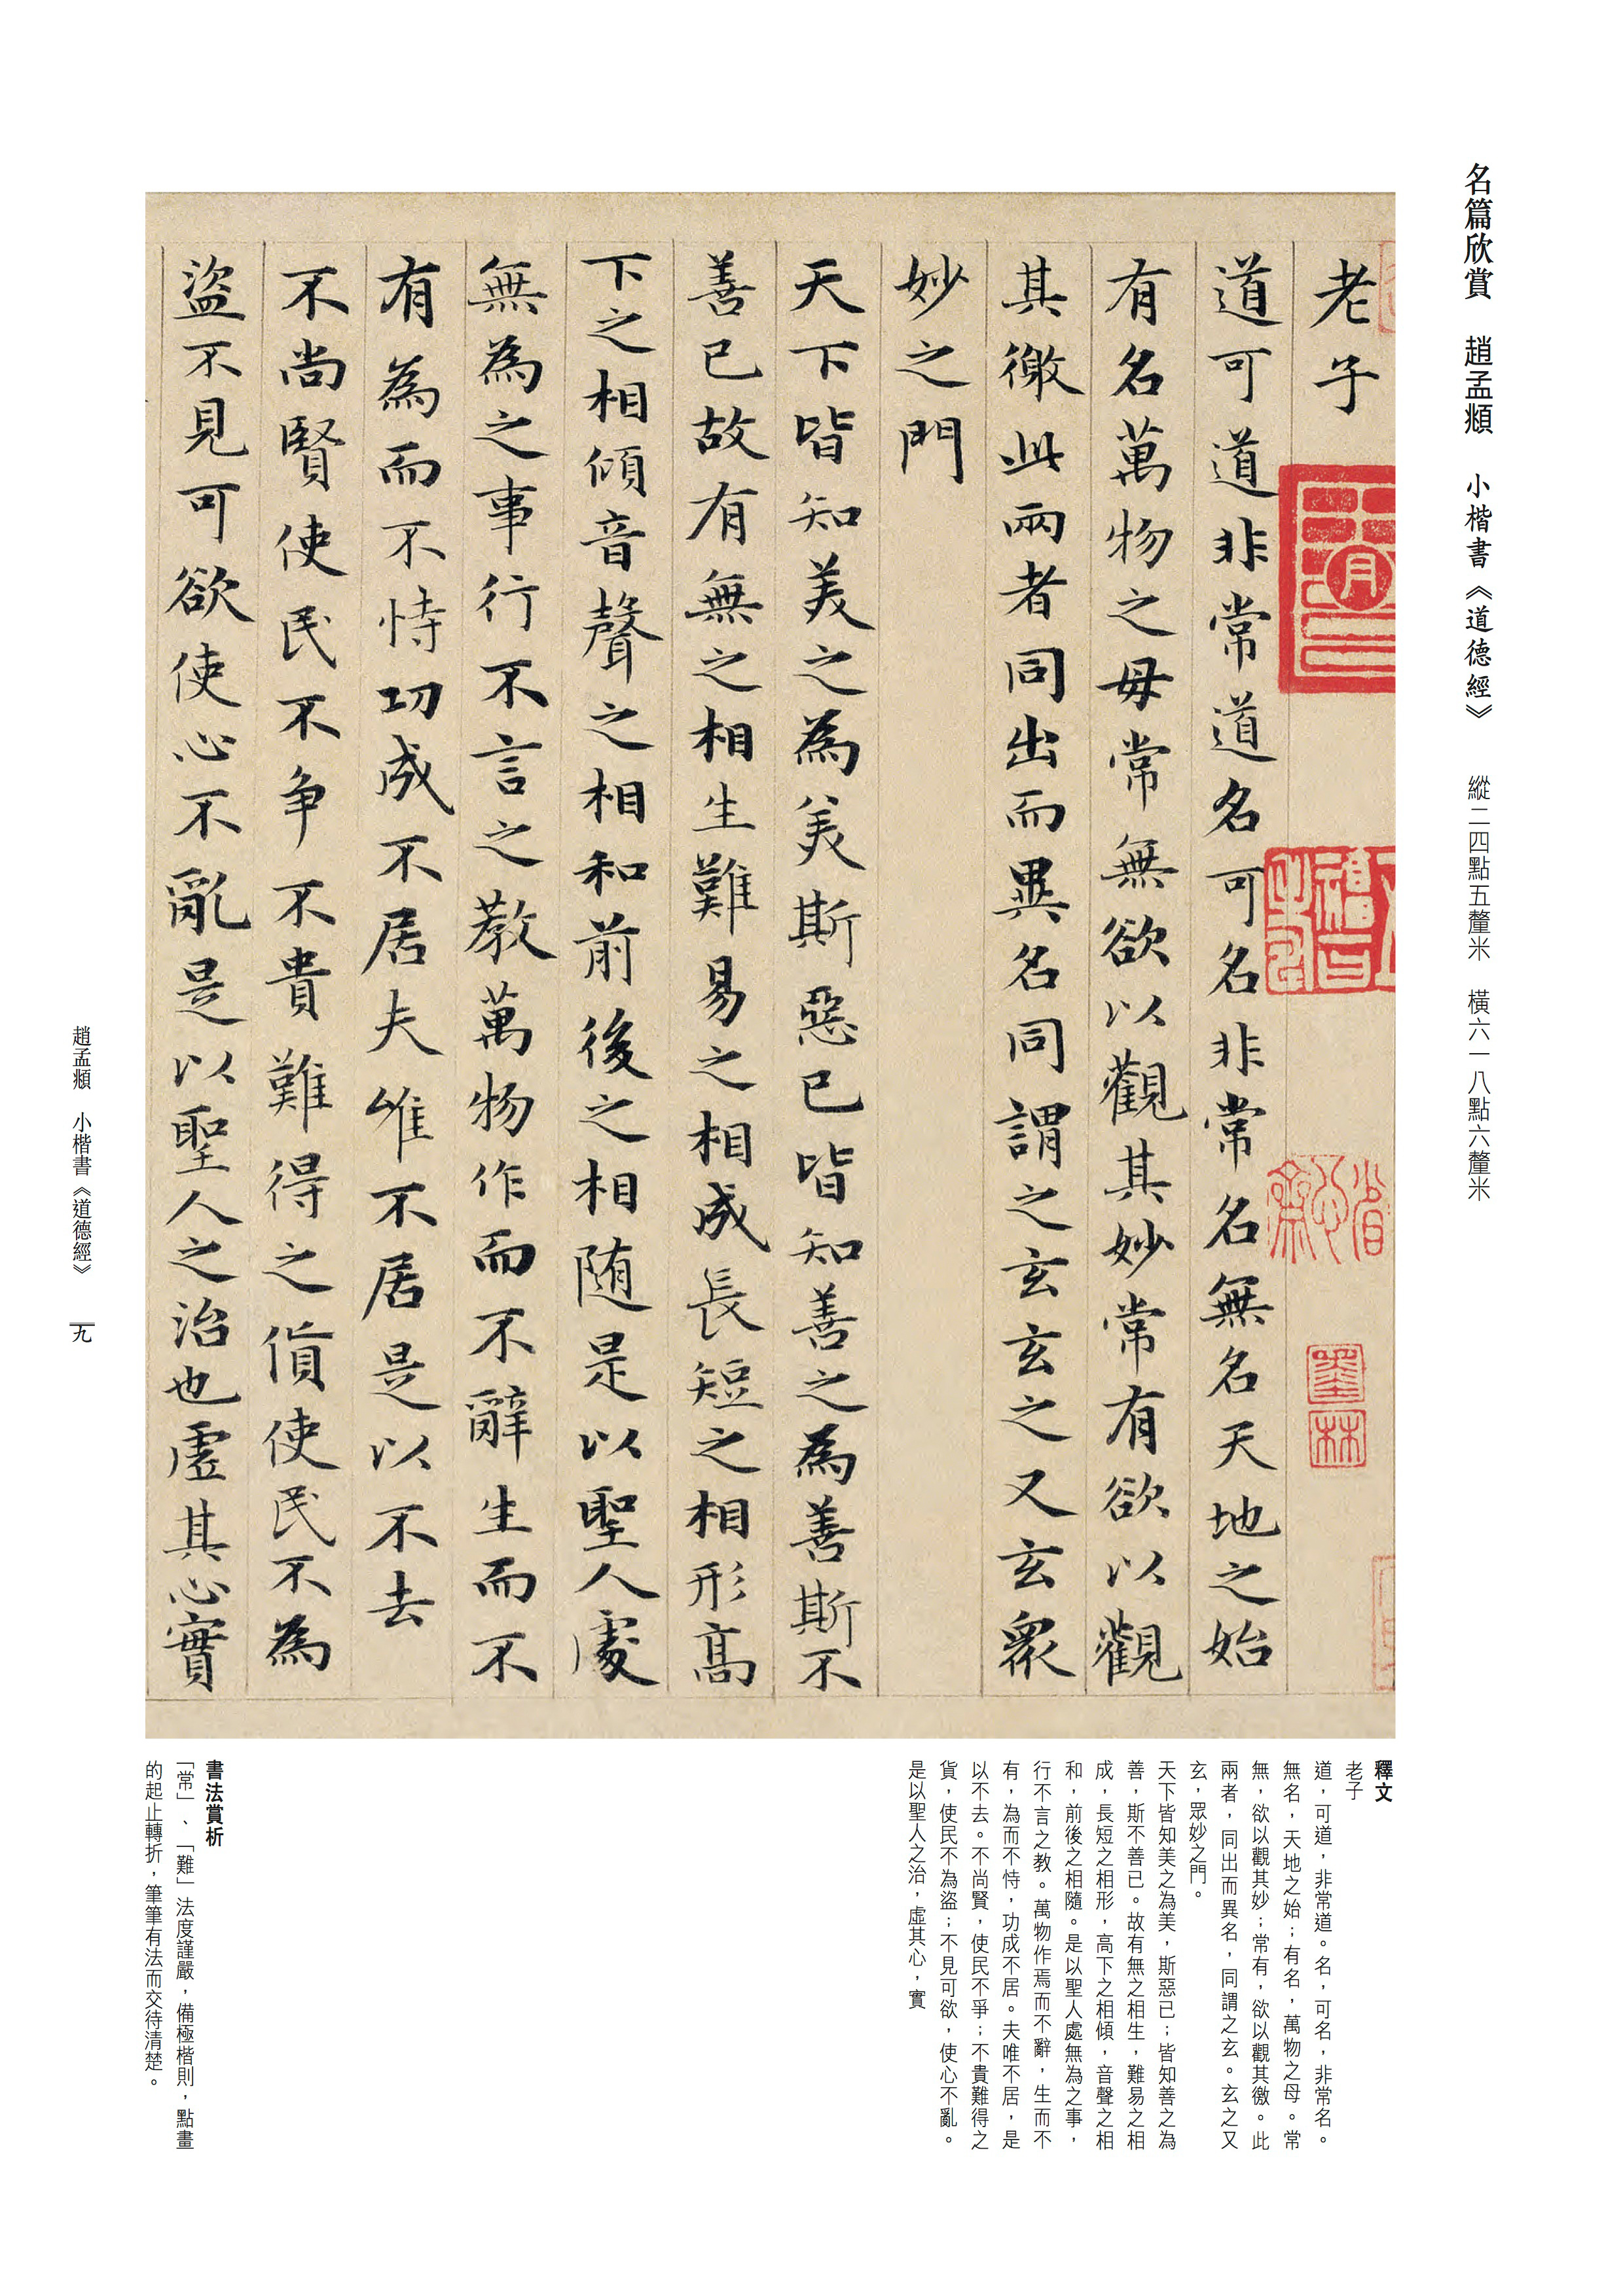 名篇欣賞　趙孟頫　小楷書《道德經》　縱二四點五釐米　橫六一八點六釐米
老子
道可道非常道名可名非常名無名天地之始
有名萬物之母常無欲以觀其妙常有欲以觀
其徼此兩者同出而異名同謂之玄玄之又玄衆
妙之門
天下皆知美之為美斯惡已皆知善之為善斯不
善已故有無之相生難易之相成長短之相形高
下之相傾音聲之相和前後之相随是以聖人處
無為之事行不言之教萬物作而不辭生而不
有為而不恃功成不居夫唯不居是以不去
不尚賢使民不争不貴難得之貨使民不為
盜不見可欲使心不亂是以聖人之治也虛其心實
墨林
釋文
老子
道，可道，非常道。名，可名，非常名。
無名，天地之始；有名，萬物之母。常
無，欲以觀其妙；常有，欲以觀其徼。此
兩者，同出而異名，同謂之玄。玄之又
玄，眾妙之門。
天下皆知美之為美，斯惡已；皆知善之為
善，斯不善已。故有無之相生，難易之相
成，長短之相形，高下之相傾，音聲之相
和，前後之相隨。是以聖人處無為之事，
行不言之教。萬物作焉而不辭，生而不
有，為而不恃，功成不居。夫唯不居，是
以不去。不尚賢，使民不爭；不貴難得之
貨，使民不為盜；不見可欲，使心不亂。
是以聖人之治，虛其心，實
書法賞析
「常」、「難」法度謹嚴，備極楷則，點畫
的起止轉折，筆筆有法而交待清楚。
趙孟頫　小楷書《道德經》　九